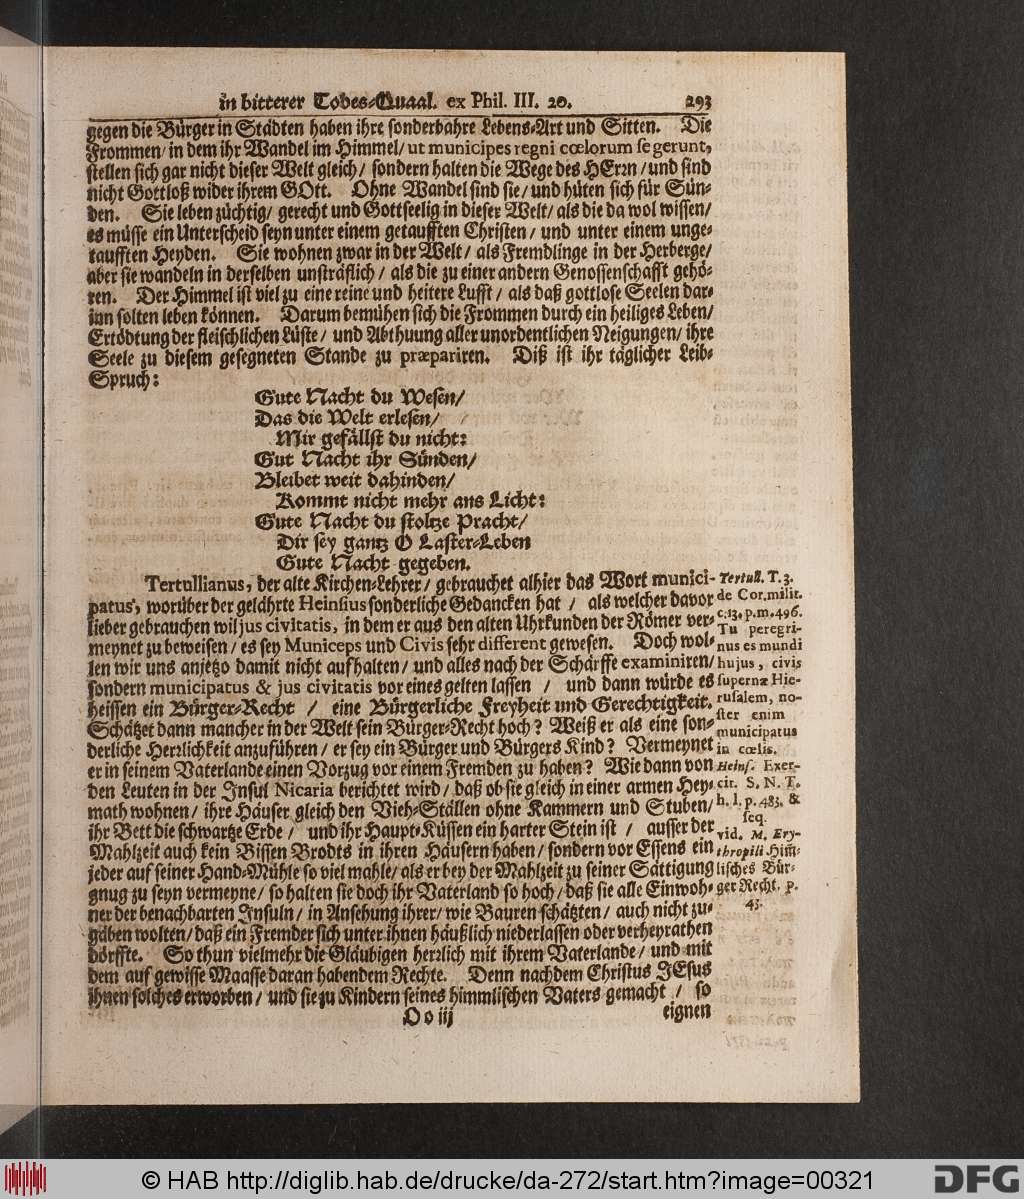 in bitterer Todes-Quaal. ex Phil. III. 20. 293
gegen die Bürger in Städten haben ihre sonderbahre Lebens-Art und Sitten. Die
Frommen/ in dem ihr Wandel im Himmel/ ut municipes regni cœlorum se gerunt,
stellen sich gar nicht dieser Welt gleich/ sondern halten die Wege des HErrn/ und sind
nicht Gottloß wider ihrem GOtt. Ohne Wandel sind sie/ und hüten sich für Sün-
den. Sie leben züchtig/ gerecht und Gottseelig in dieser Welt/ als die da wol wissen/
es müsse ein Unterscheid seyn unter einem getaufften Christen/ und unter einem unge-
taufften Heyden. Sie wohnen zwar in der Welt/ als Fremdlinge in der Herberge/
aber sie wandeln in derselben unsträflich/ als die zu einer andern Genossenschafft gehö-
ren. Der Himmel ist viel zu eine reine und heitere Lufft/ als daß gottlose Seelen dar-
inn solten leben können. Darum bemühen sich die Frommen durch ein heiliges Leben/
Ertödtung der fleischlichen Lüste/ und Abthuung aller unordentlichen Neigungen/ ihre
Seele zu diesem gesegneten Stande zu præpariren. Diß ist ihr täglicher Leib-
Spruch:
Gute Nacht du Wesen/
Das die Welt erlesen/
Mir gefällst du nicht:
Gut Nacht ihr Sünden/
Bleibet weit dahinden/
Kommt nicht mehr ans Licht:
Gute Nacht du stoltze Pracht/
Dir sey gantz O Laster-Leben
Gute Nacht gegeben.
Tertullianus, der alte Kirchen-Lehrer/ gebrauchet alhier das Wort munici-
patus, worüber der gelährte Heinsius sonderliche Gedancken hat/ als welcher davor
lieber gebrauchen wil jus civitatis, in dem er aus den alten Uhrkunden der Römer ver-
meynet zu beweisen/ es sey Municeps und Civis sehr different gewesen. Doch wol-
len wir uns anjetzo damit nicht aufhalten/ und alles nach der Schärffe examiniren/
sondern municipatus & jus civitatis vor eines gelten lassen/ und dann würde es
heissen ein Bürger-Recht/ eine Bürgerliche Freyheit und Gerechtigkeit.
Schätzet dann mancher in der Welt sein Bürger-Recht hoch? Weiß er als eine son-
derliche Herrlichkeit anzuführen/ er sey ein Bürger und Bürgers Kind? Vermeynet
er in seinem Vaterlande einen Vorzug vor einem Fremden zu haben? Wie dann von
den Leuten in der Insul Nicaria berichtet wird/ daß ob sie gleich in einer armen Hey-
math wohnen/ ihre Häuser gleich den Vieh-Ställen ohne Kammern und Stuben/
ihr Bett die schwartze Erde/ und ihr Haupt-Küssen ein harter Stein ist/ ausser der
Mahlzeit auch kein Bissen Brodts in ihren Häusern haben/ sondern vor Essens ein
jeder auf seiner Hand-Mühle so viel mahle/ als er bey der Mahlzeit zu seiner Sättigung
gnug zu seyn vermeyne/ so halten sie doch ihr Vaterland so hoch/ daß sie alle Einwoh-
ner der benachbarten Insuln/ in Ansehung ihrer/ wie Bauren schätzten/ auch nicht zu-
gäben wolten/ daß ein Fremder sich unter ihnen häußlich niederlassen oder verheyrathen
dörffte. So thun vielmehr die Gläubigen herzlich mit ihrem Vaterlande/ und mit
dem auf gewisse Maasse daran habendem Rechte. Denn nachdem Christus JEsus
ihnen solches erworben/ und sie zu Kindern seines himmlischen Vaters gemacht/ so
Oo iij eignen
Tertull. T. 3.
de Cor. milit.
c. 13. p. m. 496.
Tu peregri-
nus es mundi
hujus, civis
supernæ Hie-
rusalem, no-
ster enim
municipatus
in cœlis.
Heins. Exer-
cit. S. N. T.
h. l. p. 483. &
seq.
vid. M. Ery-
thropili Him̃-
lisches Bür-
ger Recht. p.
43.
© HAB http://diglib.hab.de/drucke/da-272/start.htm?image=00321
DFG